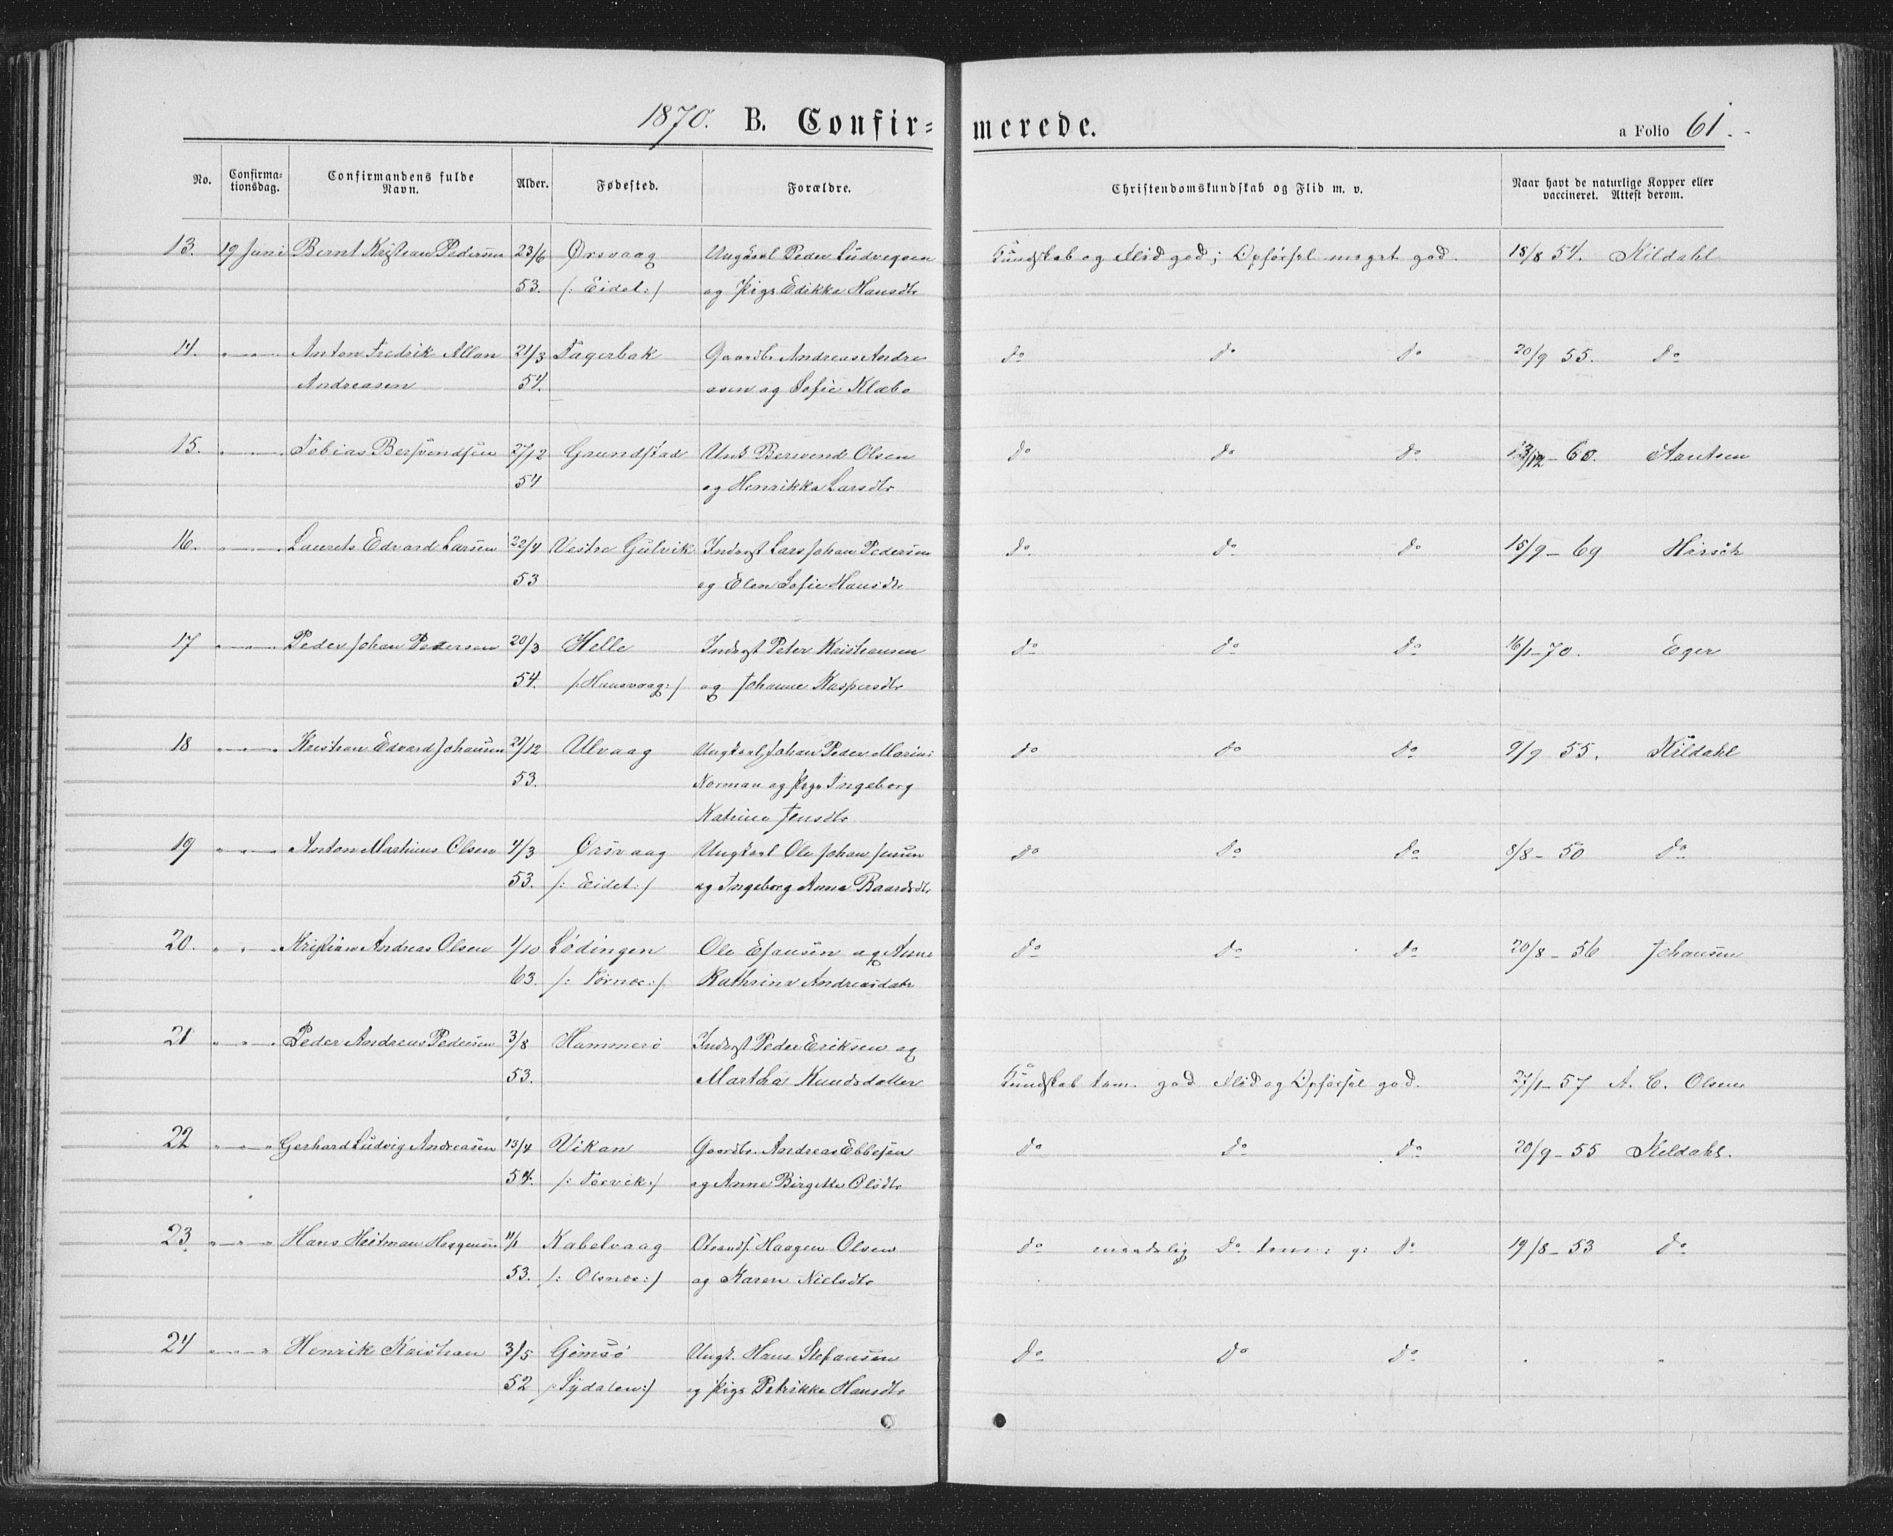 1870. B. Confirmerede. a Folio 61.
No. Confirmationsdag. Confirmandens fulde Navn. Alder. Fødested. Forældre. Christendomskundskab og Flid m. v. Naar havt de naturlige Kopper eller vaccineret. Attest derom.
13. 19 Juni Bernt Kristian Pedersen 23/6 Ørsvaag Ungkarl Peder Ludvigsen Kundskab og Flid god; Opførsel meget god. 18/8 54. Kildahl
53. /: Eidet :/ og Pige Edikke Hansdtr
14. " " Anton Fredrik Allan 21/3 Fagerbak Gaardbr Andreas Andre do do do 20/9 55. do
Andreasen 54. asen og Sofie Klæbo
15. " " Tobias Bersvendsen 27/12 Grundstad Bersvend Olsen do do do 13/12 - 60. Aantsen
54 og Henrikka Larsdtr
16. " " Laurits Edvard Larsen 22/4 Vestre Gulvik Inderst Lars Johan Pedersen do do do 15/9 - 69 Hirsch
53 og Elen Sofie Hansdtr
17 " " Peder Johan Pedersen 20/3 Helle Inderst Peter Kristiansen do do do 16/1 - 70. Eger
54. /: Hunsvaag :/ og Johanne Kaspersdtr
18 " " Kristian Edvard Johansen 21/12 Ulvaag Ungkarl Johan Peder Marius do do do 9/9 55. Kildahl
53. Norman og Pige Ingeborg
Katrine Jensdtr
19 " " Anton Martinus Olsen 4/3 Ørsvaag Ungkarl Ole Johan Jensen do do do 8/8 - 50 do
53. /: Eidet :/ og Ingeborg Anna Baardsdtr
20. " " Kristian Andreas Olsen 1/10 Lødingen Ole Esausen og Anne do do do 20/8 - 56 Johansen
63. Kathrina Andreasdatr
21 " " Peder Andreas Pedersen 3/8 Hammerø Inderst Peder Eriksen og
53. Martha Knudsdatter Kundskab tem. god Flid og Opførsel god. 27/1 - 57 A. C. Olsen
22 " " Gerhard Ludvig Andreasen 13/4 Vikan Gaardbr. Andreas Ebbesen do do do 20/9 - 55 Kildahl.
54. /: Torvik :/ og Anne Birgitte Olsdtr
23 " " Hans Heitman Haagensen 11/1 Kabelvaag Strands. Haagen Olsen do maadelig do tem: g: do 19/8 - 53 do
53. /: Olsnes :/ og Karen Nielsdtr
24 " " Henrik Kristian 3/5 Gimsø Ungk. Hans Stefansen do do do " "
52 /: Sydalen :/ og Pige Petrikke Hansdtr